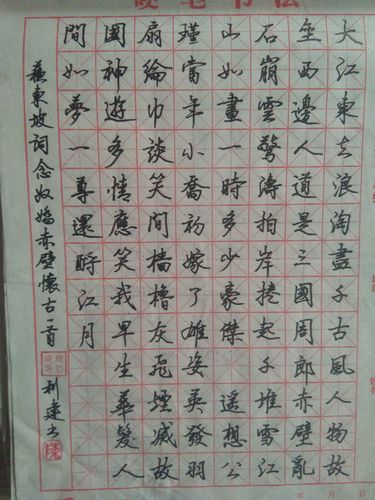 大江東去浪淘盡千古風人物故
壘西邊人道是三國周郎赤壁亂
石崩雲驚濤拍岸捲起千堆雪江
山如畫一時多少豪傑遥想公
瑾當年小喬初嫁了雄姿英發羽
扇綸巾談笑間檣櫓灰飛煙滅故
國神遊多情應笑我早生華髮人
間如夢一尊還酹江月
蘇東坡詞念奴嬌赤壁懷古一首 利建书
年 月 日